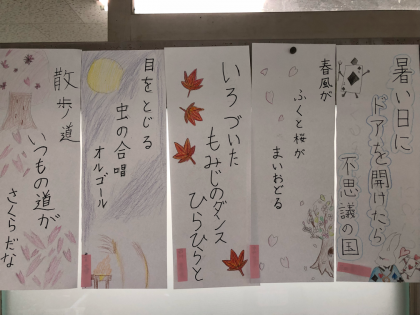 暑い日に
ドアを開けたら
不思議の国
春風が
ふくと桜が
まいおどる
いろづいた
もみじのダンス
ひらひらと
目をとじる
虫の合唱
オルゴール
散歩道
いつもの道が
さくらだな